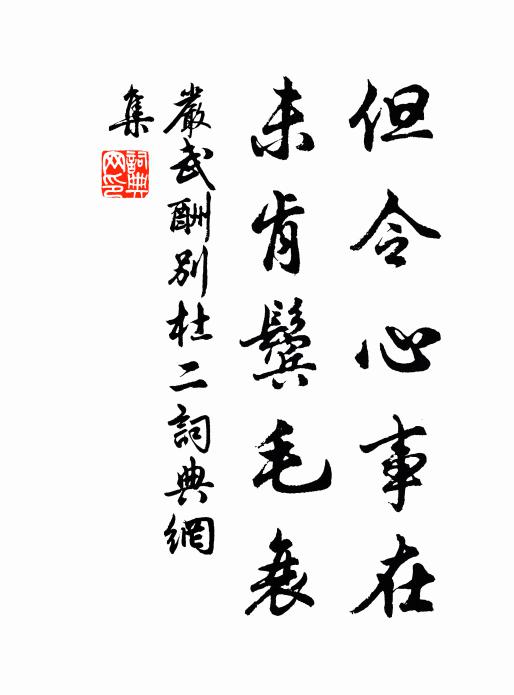 但令心事在
未肯鬓毛衰
嚴武酬別杜二詞典網
集
詞典
网印